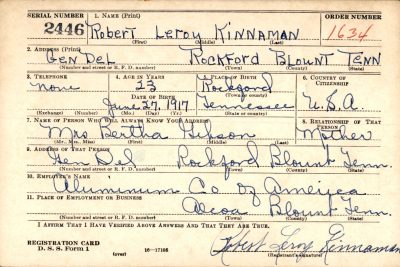 SERIAL NUMBER 1. NAME (Print) ORDER NUMBER
2446 Robert Leroy Kinnaman 1634
(First) (Middle) (Last)
2. ADDRESS (Print)
Gen Del Rockford Blount Tenn
(Number and street or R. F. D. number) (Town) (County) (State)
3. TELEPHONE 4. AGE IN YEARS 5. PLACE OF BIRTH 6. COUNTRY OF CITIZENSHIP
none 23 Rockford
DATE OF BIRTH (Town or county)
June 27, 1917 Tennessee U.S.A
(Exchange) (Number) (Mo.) (Day) (Yr.) (State or country)
7. NAME OF PERSON WHO WILL ALWAYS KNOW YOUR ADDRESS 8. RELATIONSHIP OF THAT PERSON
Mrs Bertha Gibson Mother
(Mr., Mrs., Miss) (First) (Middle) (Last)
9. ADDRESS OF THAT PERSON
Gen Del Rockford Blount Tenn.
(Number and street or R. F. D. number) (Town) (County) (State)
10. EMPLOYER'S NAME
Aluminum Co of America
11. PLACE OF EMPLOYMENT OR BUSINESS
Alcoa Blount Tenn.
(Number and street or R. F. D. number) (Town) (County) (State)
I AFFIRM THAT I HAVE VERIFIED ABOVE ANSWERS AND THAT THEY ARE TRUE.
REGISTRATION CARD
D. S. S. Form 1 (over) 16—17105 Robert Leroy Kinnaman
(Registrant's signature)